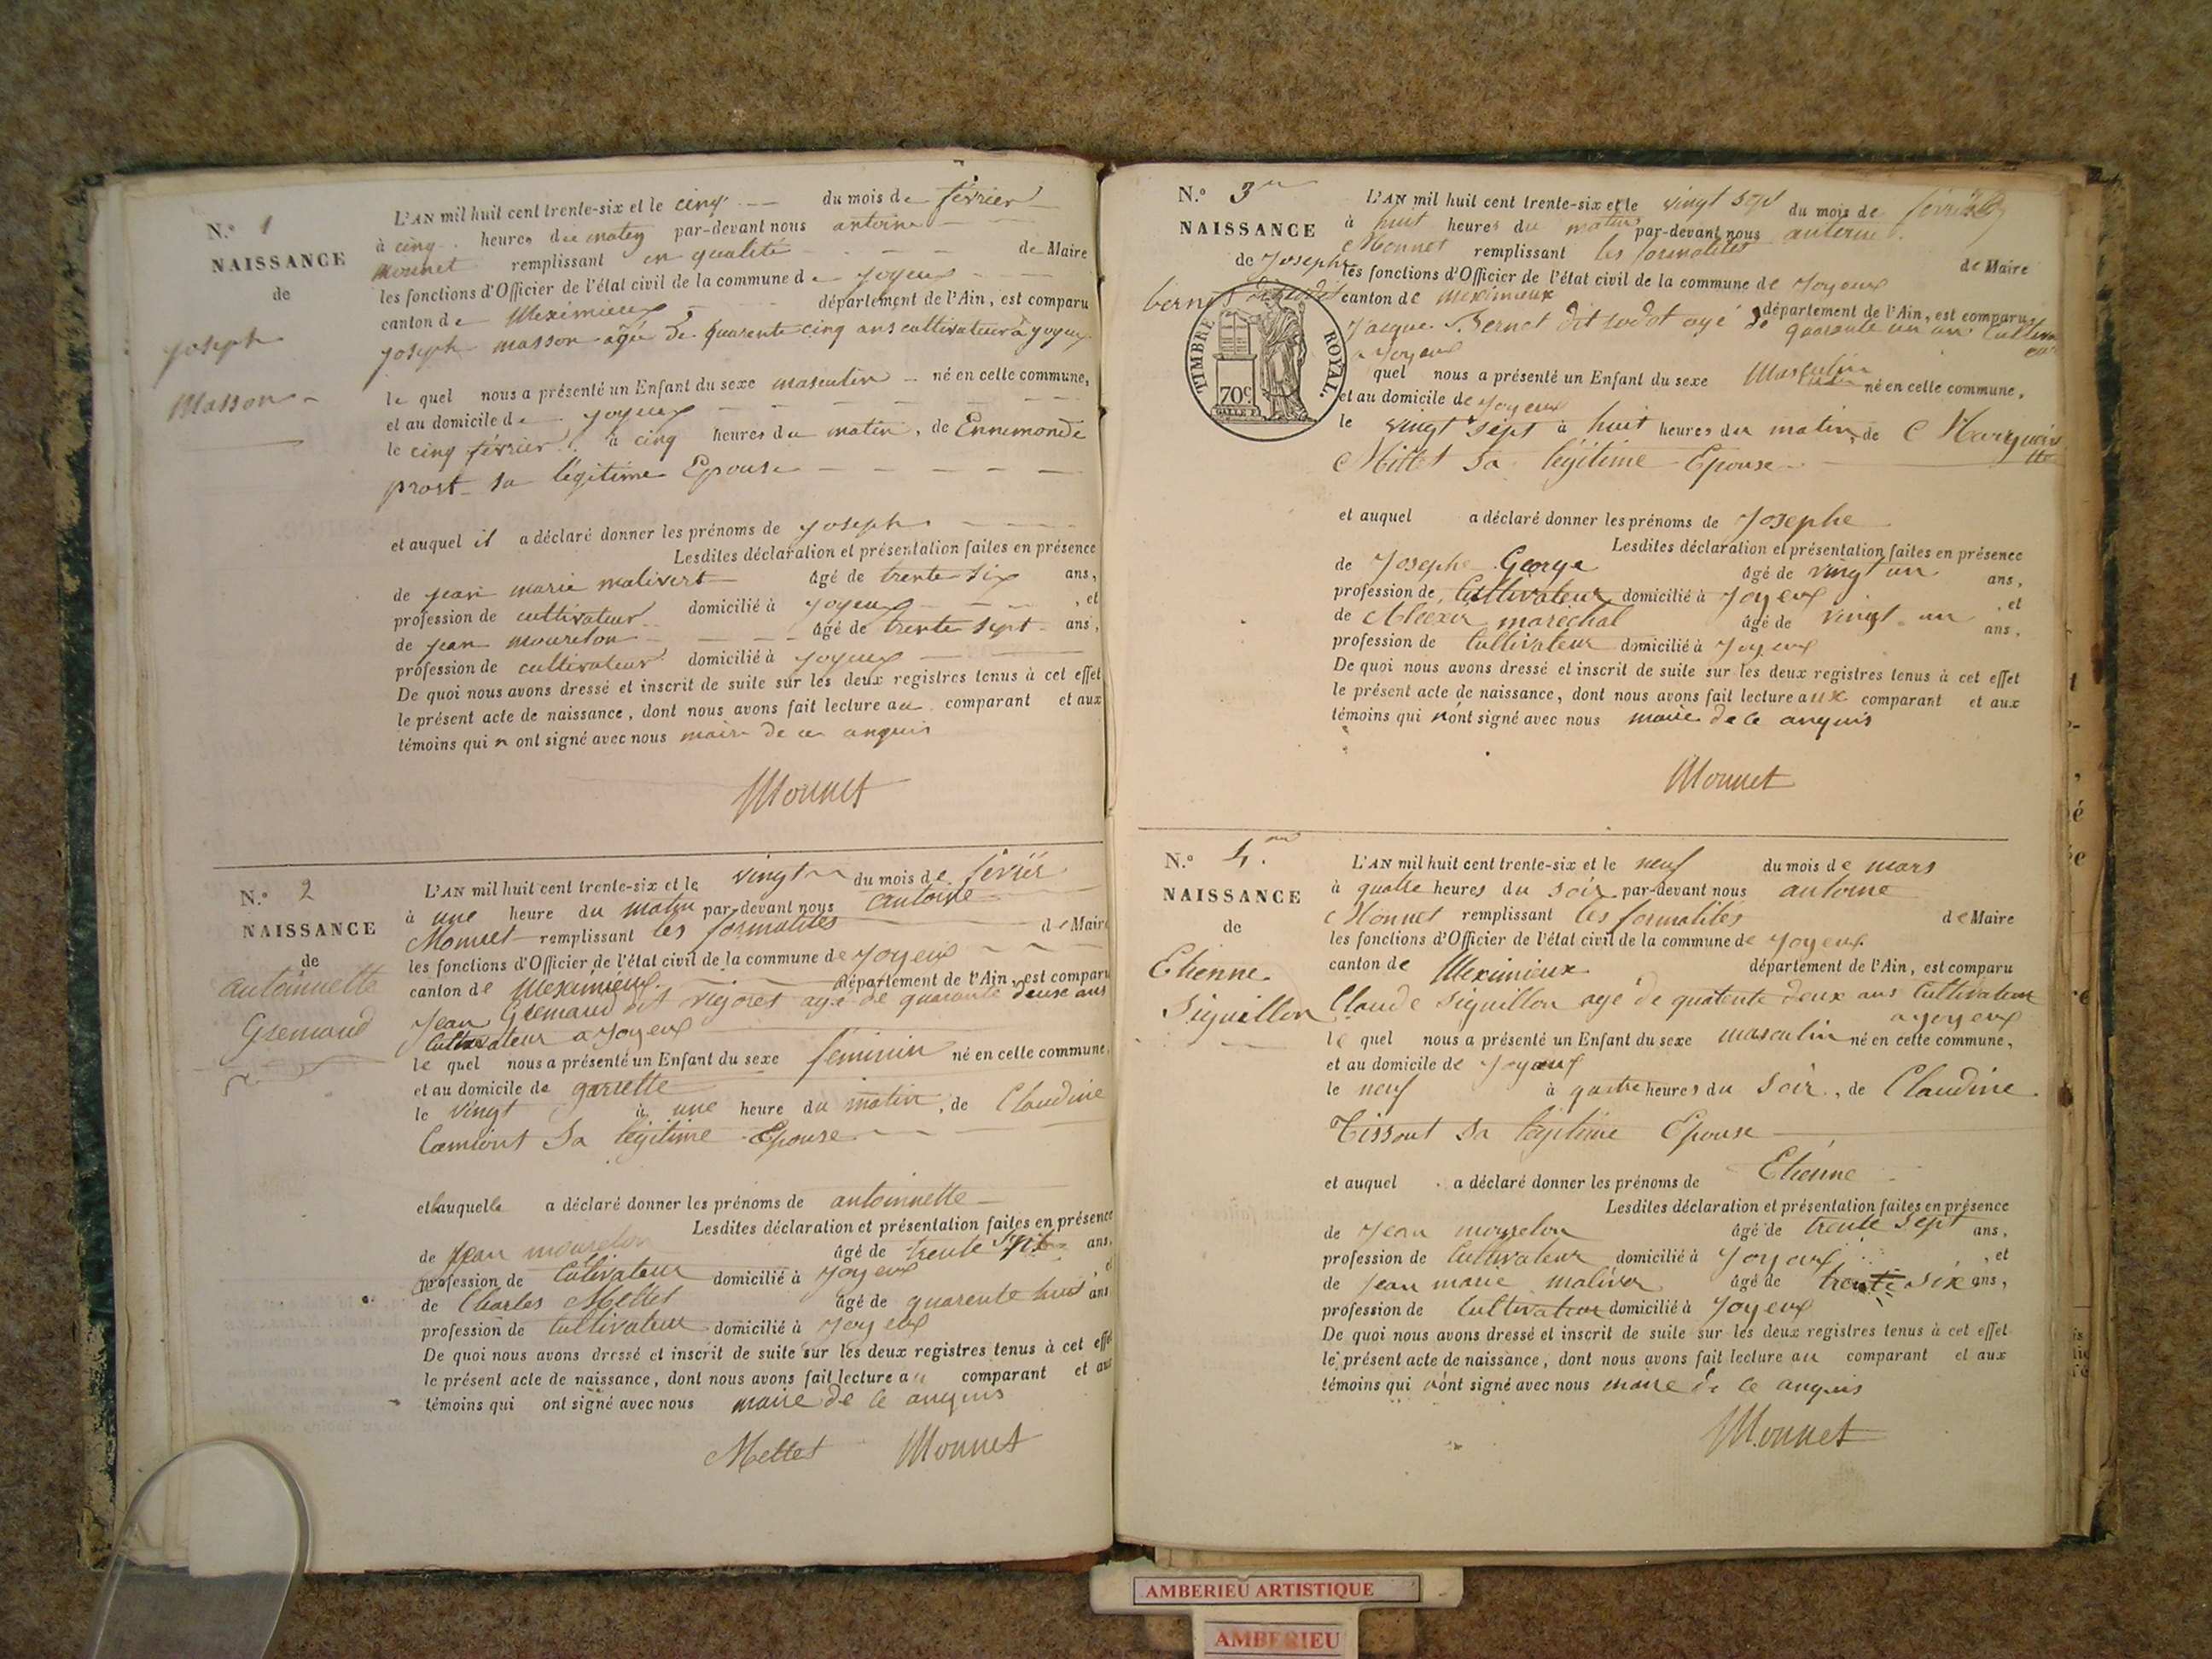 N.º 1
NAISSANCE
de
Joseph
Masson
L'AN mil huit cent trente-six et le cinq du mois de février
à cinq heures du matin par-devant nous antoine
monnet remplissant en qualité de Maire
les fonctions d'Officier de l'état civil de la commune de Joyeux
canton de Meximieux département de l'Ain, est comparu
joseph masson agé de quarente cinq ans cultivateur à joyeux
le quel nous a présenté un Enfant du sexe masculin né en celle commune,
et au domicile de joyeux
le cinq février à cinq heures du matin, de Ennemonde
prost sa légitime Epouse
et auquel il a déclaré donner les prénoms de joseph
Lesdites déclaration et présentation faites en présence
de jean marie malivert âgé de trente six ans,
profession de cultivateur domicilié à joyeux, et
de jean mourelon âgé de trente sept ans,
profession de cultivateur domicilié à joyeux
De quoi nous avons dressé et inscrit de suite sur les deux registres tenus à cet effet
le présent acte de naissance, dont nous avons fait lecture au comparant et aux
témoins qui n ont signé avec nous maire de ce anquis
Monnet
N.º 2
NAISSANCE
de
antoinnette
Gremaud
L'AN mil huit cent trente-six et le vingt du mois de févriér
à une heure du matin par-devant nous antoine
Monnet remplissant les formalités de Maire
les fonctions d'Officier de l'état civil de la commune de Joyeux
canton de Meximieux département de l'Ain, est comparu
Jean Gremaud dit agé de quarante deuse ans
Cultivateur a Joyeux
le quel nous a présenté un Enfant du sexe féminin né en celle commune,
et au domicile de garrette
le vingt à une heure du matin, de Claudine
Camiont Sa légitime Epouse
et lauquelle a déclaré donner les prénoms de antoinnette
Lesdites déclaration et présentation faites en présence
de Jean mourelon âgé de trente Sept ans,
profession de Cultivateur domicilié à Joyeux, et
de Charles Mettet âgé de quarente huit ans
profession de Cultivateur domicilié à Joyeux
De quoi nous avons dressé et inscrit de suite sur les deux registres tenus à cet effet
le présent acte de naissance, dont nous avons fait lecture au comparant et aux
témoins qui ont signé avec nous maire de ce anquis
Mettet Monnet
N.º 3
NAISSANCE
de Josephe
bernet
TIMBRE ROYAL.
70c
L'AN mil huit cent trente-six et le vingt sept du mois de février
à huit heures du matin par-devant nous antoine
Monnet remplissant les formalités de Maire
les fonctions d'Officier de l'état civil de la commune de Joyeux
canton de meximieux département de l'Ain, est comparu
Jacque Bernet dit dodot agé de quarante un an Cultivateur
a Joyeux
quel nous a présenté un Enfant du sexe Masculin né en celle commune,
et au domicile de Joyeux
le vingt sept à huit heures du matin, de Marguerite
Mittet Sa légitime Epouse
et auquel a déclaré donner les prénoms de Josephe
Lesdites déclaration et présentation faites en présence
de Josephe George âgé de vingt un ans,
profession de Cultivateur domicilié à Joyeux, et
de Alexis maréchal âgé de vingt un ans,
profession de Cultivateur domicilié à Joyeux
De quoi nous avons dressé et inscrit de suite sur les deux registres tenus à cet effet
le présent acte de naissance, dont nous avons fait lecture aux comparant et aux
témoins qui n'ont signé avec nous maire de ce anquis
Monnet
N.º 4
NAISSANCE
de
Etienne
Siguillon
L'AN mil huit cent trente-six et le neuf du mois de mars
à quatre heures du soir par-devant nous antoine
Monnet remplissant les formalités de Maire
les fonctions d'Officier de l'état civil de la commune de Joyeux
canton de Meximieux département de l'Ain, est comparu
Claude Siguillon agé de quatente deux ans Cultivateur
a joyeux
le quel nous a présenté un Enfant du sexe masculin né en cette commune,
et au domicile de Joyeux
le neuf à quatre heures du Soir, de Claudine
Tissout Sa légitime Epouse
et auquel a déclaré donner les prénoms de Etienne
Lesdites déclaration et présentation faites en présence
de Jean mourelon âgé de trente Sept ans,
profession de Cultivateur domicilié à Joyeux, et
de Jean marie maliver âgé de trente Six ans,
profession de Cultivateur domicilié à Joyeux
De quoi nous avons dressé et inscrit de suite sur les deux registres tenus à cet effet
le présent acte de naissance, dont nous avons fait lecture au comparant et aux
témoins qui n'ont signé avec nous maire de ce anquis
Monnet
AMBERIEU ARTISTIQUE
AMBERIEU